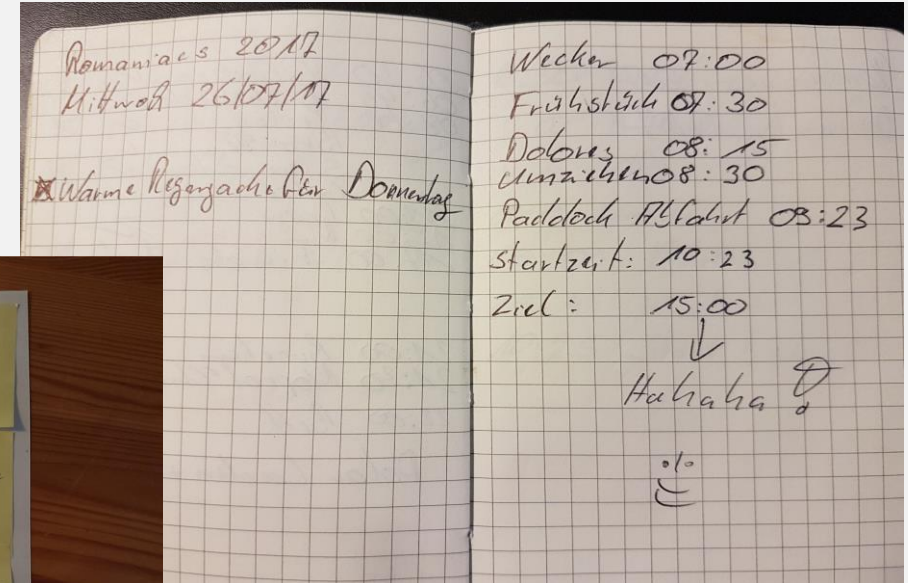 Romaniacs 2017
Mittwoch 26/07/17
Warme Regenjacke für Donnerstag
Wecker 07:00
Frühstück 07:30
Dolores 08:15
Umziehen 08:30
Paddock Abfahrt 09:23
Startzeit: 10:23
Ziel: 15:00
Hahaha